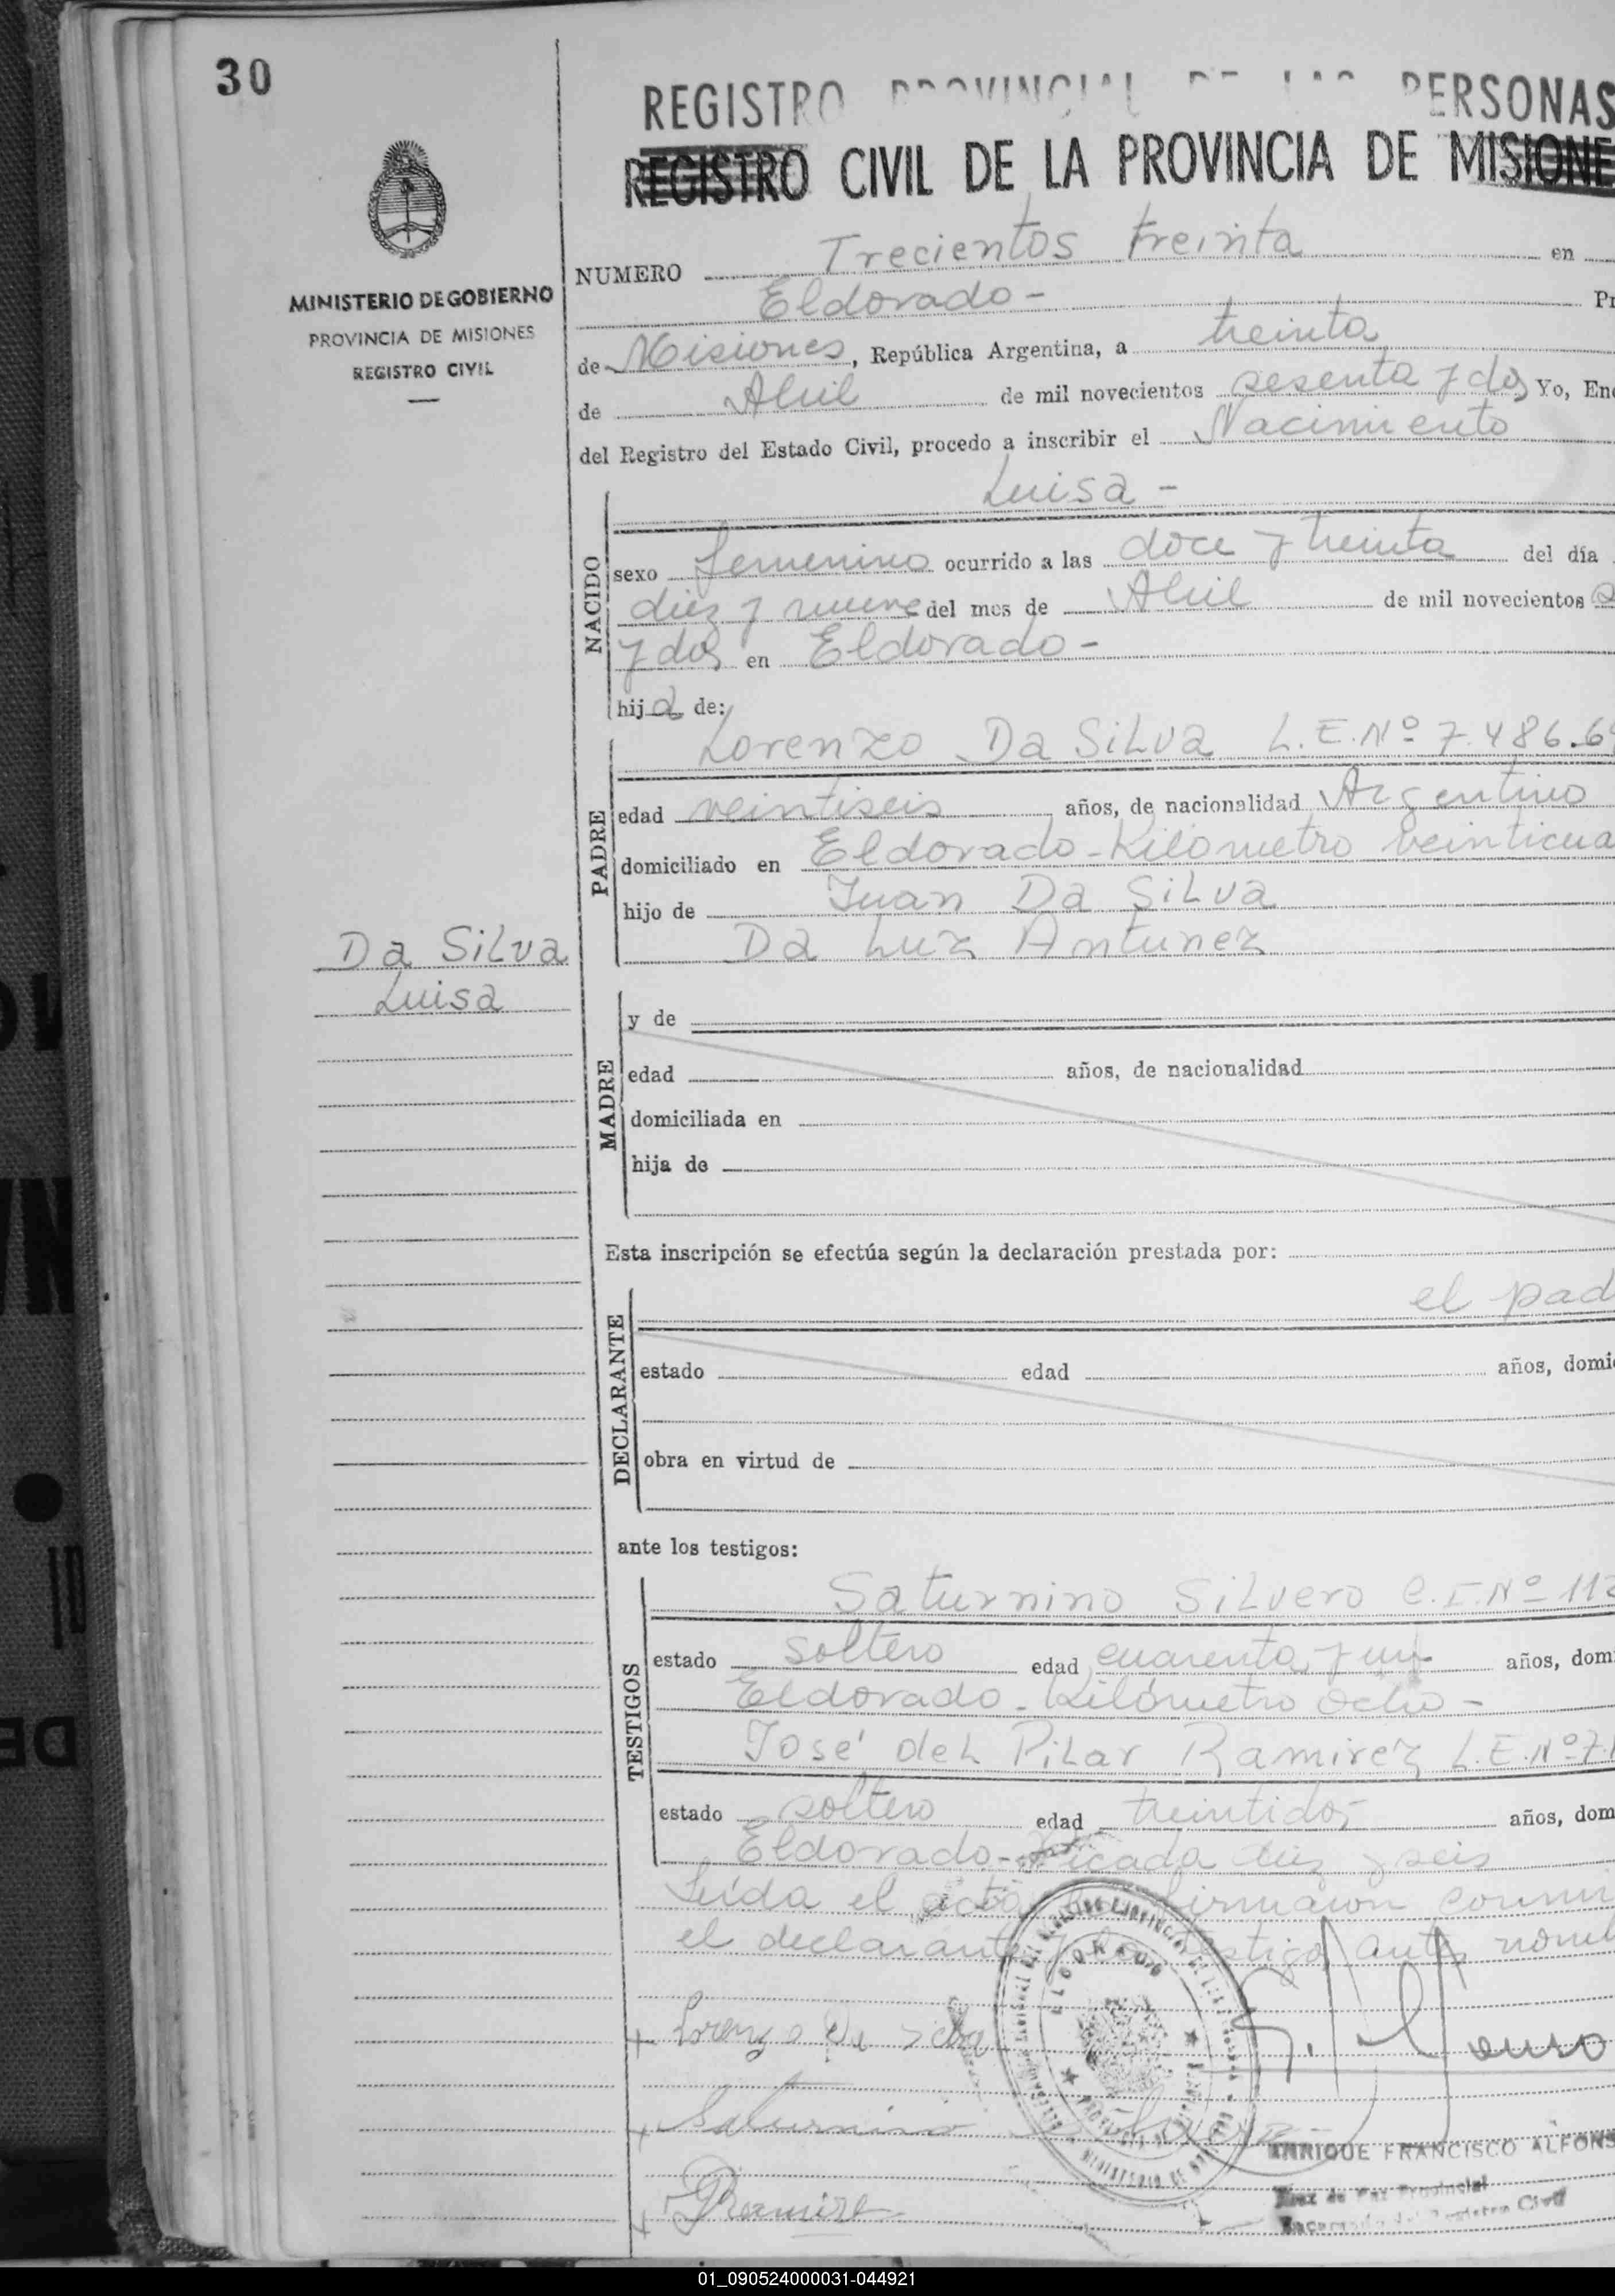 30
REGISTRO PROVINCIAL DE LAS PERSONAS
REGISTRO CIVIL DE LA PROVINCIA DE MISIONE
MINISTERIO DE GOBIERNO
PROVINCIA DE MISIONES
REGISTRO CIVIL
NUMERO Trecientos treinta en
Eldorado - Pr
de Misiones, República Argentina, a treinta
de Abril de mil novecientos sesenta y dos Yo, Enc
del Registro del Estado Civil, procedo a inscribir el Nacimiento
NACIDO
Luisa -
sexo femenino ocurrido a las doce y treinta del día
diez y nueve del mes de Abril de mil novecientos
y dos en Eldorado -
hija de:
PADRE
Lorenzo Da Silva L.E. Nº 7.486.6
edad veintiseis años, de nacionalidad Argentino
domiciliado en Eldorado - Kilómetro veinticua
hijo de Juan Da Silva
Da Luz Antunez
Da Silva
Luisa
MADRE
y de
edad años, de nacionalidad
domiciliada en
hija de
Esta inscripción se efectúa según la declaración prestada por:
DECLARANTE
el pad
estado edad años, domi
obra en virtud de
ante los testigos:
TESTIGOS
Saturnino Silvero C.I. Nº 112
estado soltero edad cuarenta y un años, dom
Eldorado - Kilómetro ocho -
José del Pilar Ramirez L.E. Nº 7.
estado soltero edad treintidos años, dom
Eldorado - Picada diez y seis
Leída el acta firmaron conmi
el declarante y los testigos antes nomb
Lorenzo Da Silva
Saturnino Silvero
Ramirez
ELDORADO
ENRIQUE FRANCISCO ALFONS
Juez de Paz Provincial
Encargado del Registro Civil
01_090524000031-044921